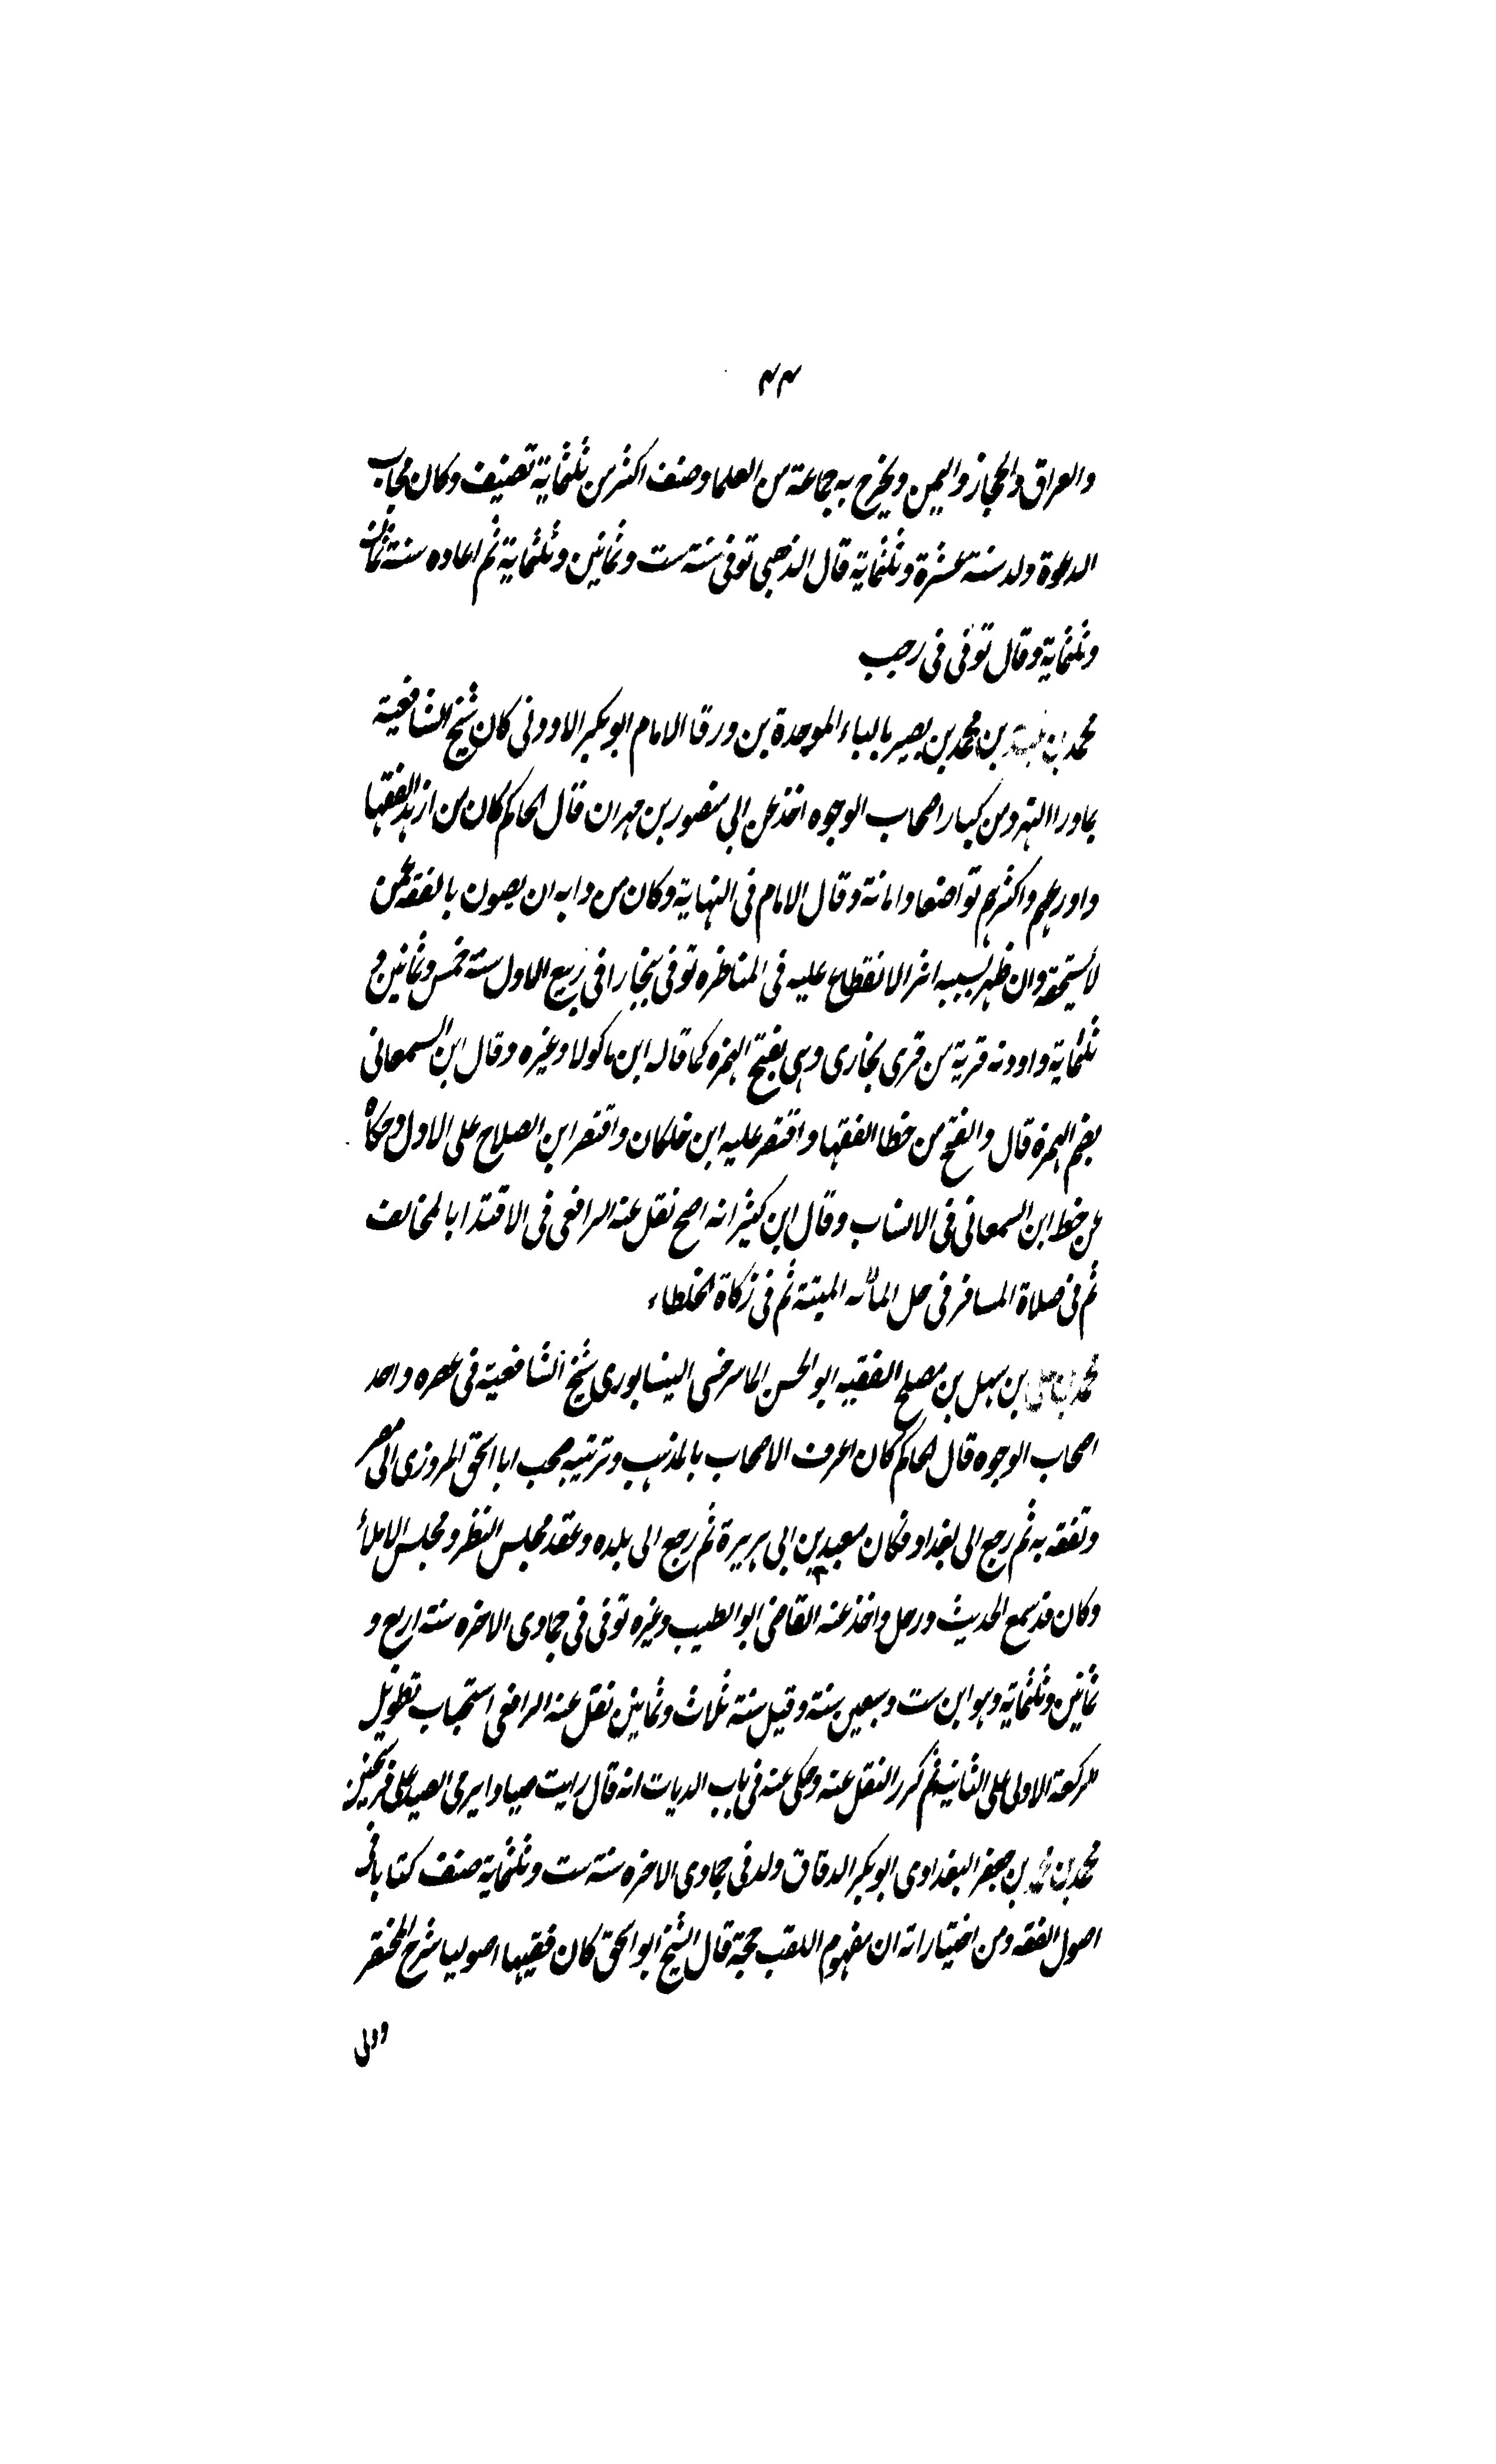 ٤٤
والعراق والحجاز واليمن وتخرج به جماعة من العلما وصنف اكثر من ثلثماية تصنيف وكان مجاب
الدعوة ولد سنة عشرة وثلثماية قال الذهبي توفى سنة ست وثمانين وثلثماية ثم اعاده سنة ثمان
وثلثماية وقال توفى فى رجب
محمد بن بن محمد بن بصير بالباء الموحدة بن ورقا الامام ابو بكر الاودنى كان شيخ الشافعية
بماورا النهر ومن كبار اصحاب الوجوه اخذ عن ابى منصور بن مهران قال الحاكم كان من ازهد الفقها
واورعهم واكثرهم تواضعا وامانة وقال الامام فى النهاية وكان من دابه ان يصون بالفقه عمن
لا يستحقه وان ظهر بسببه اثر الانقطاع عليه فى المناظره توفى ببخارا فى ربيع الاول سنة خمس وثمانين و
ثلثماية واودنه قرية من قرى بخارى وهى بفتح الهمزه كما قاله ابن ماكولا وغيره وقال ابن السمعانى
بضم الهمزه قال والفتح من خطا الفقها واقتصر عليه ابن خلكان واقتصر ابن الصلاح على الاول وحكاه
عن خط ابن السمعانى فى الانساب وقال ابن كثير انه اصح نقل عنه الرافعى فى الاقتدا بالمخالف
ثم فى صلاة المسافر فى حل الميتة ثم فى زكاة الخلطاء
محمد بن على بن سهل بن مصلح الفقيه ابو الحسن الماسرخسى النيسابورى شيخ الشافعية فى عصره واحد
اصحاب الوجوه قال الحاكم كان اعرف الاصحاب بالمذهب وترتيبه صحب ابا اسحق المروزى الى مصر
وتفقه به ثم رجع الى بغداد فكان معيد بن ابى هريرة ثم رجع الى بلده وعقد مجلس النظر ومجلس الاملأ
وكان قد سمع الحديث ورحل واخذ عنه القاضى ابو الطيب وغيره توفى فى جمادى الاخره سنة اربع و
ثمانين وثلثماية وهو ابن ست وسبعين سنة وقيل سنة ثلاث وثمانين نقل عنه الرافعى استحباب تطويل
الركعة الاولى على الثانية ثم كرر النقل عنه وحكى عنه فى باب الديات انه قال رايت صيادا يرمى الصيد على فرسخين
محمد بن محمد بن جعفر البغدادى ابو بكر الدقاق ولد فى جمادى الاخره سنة ست وثلثماية صنف كتابا فى
اصول الفقه ومن اختياراته ان مفهوم اللقب حجة قال الشيخ ابو اسحق كان فقيها اصوليا شرح المختصر
وولى